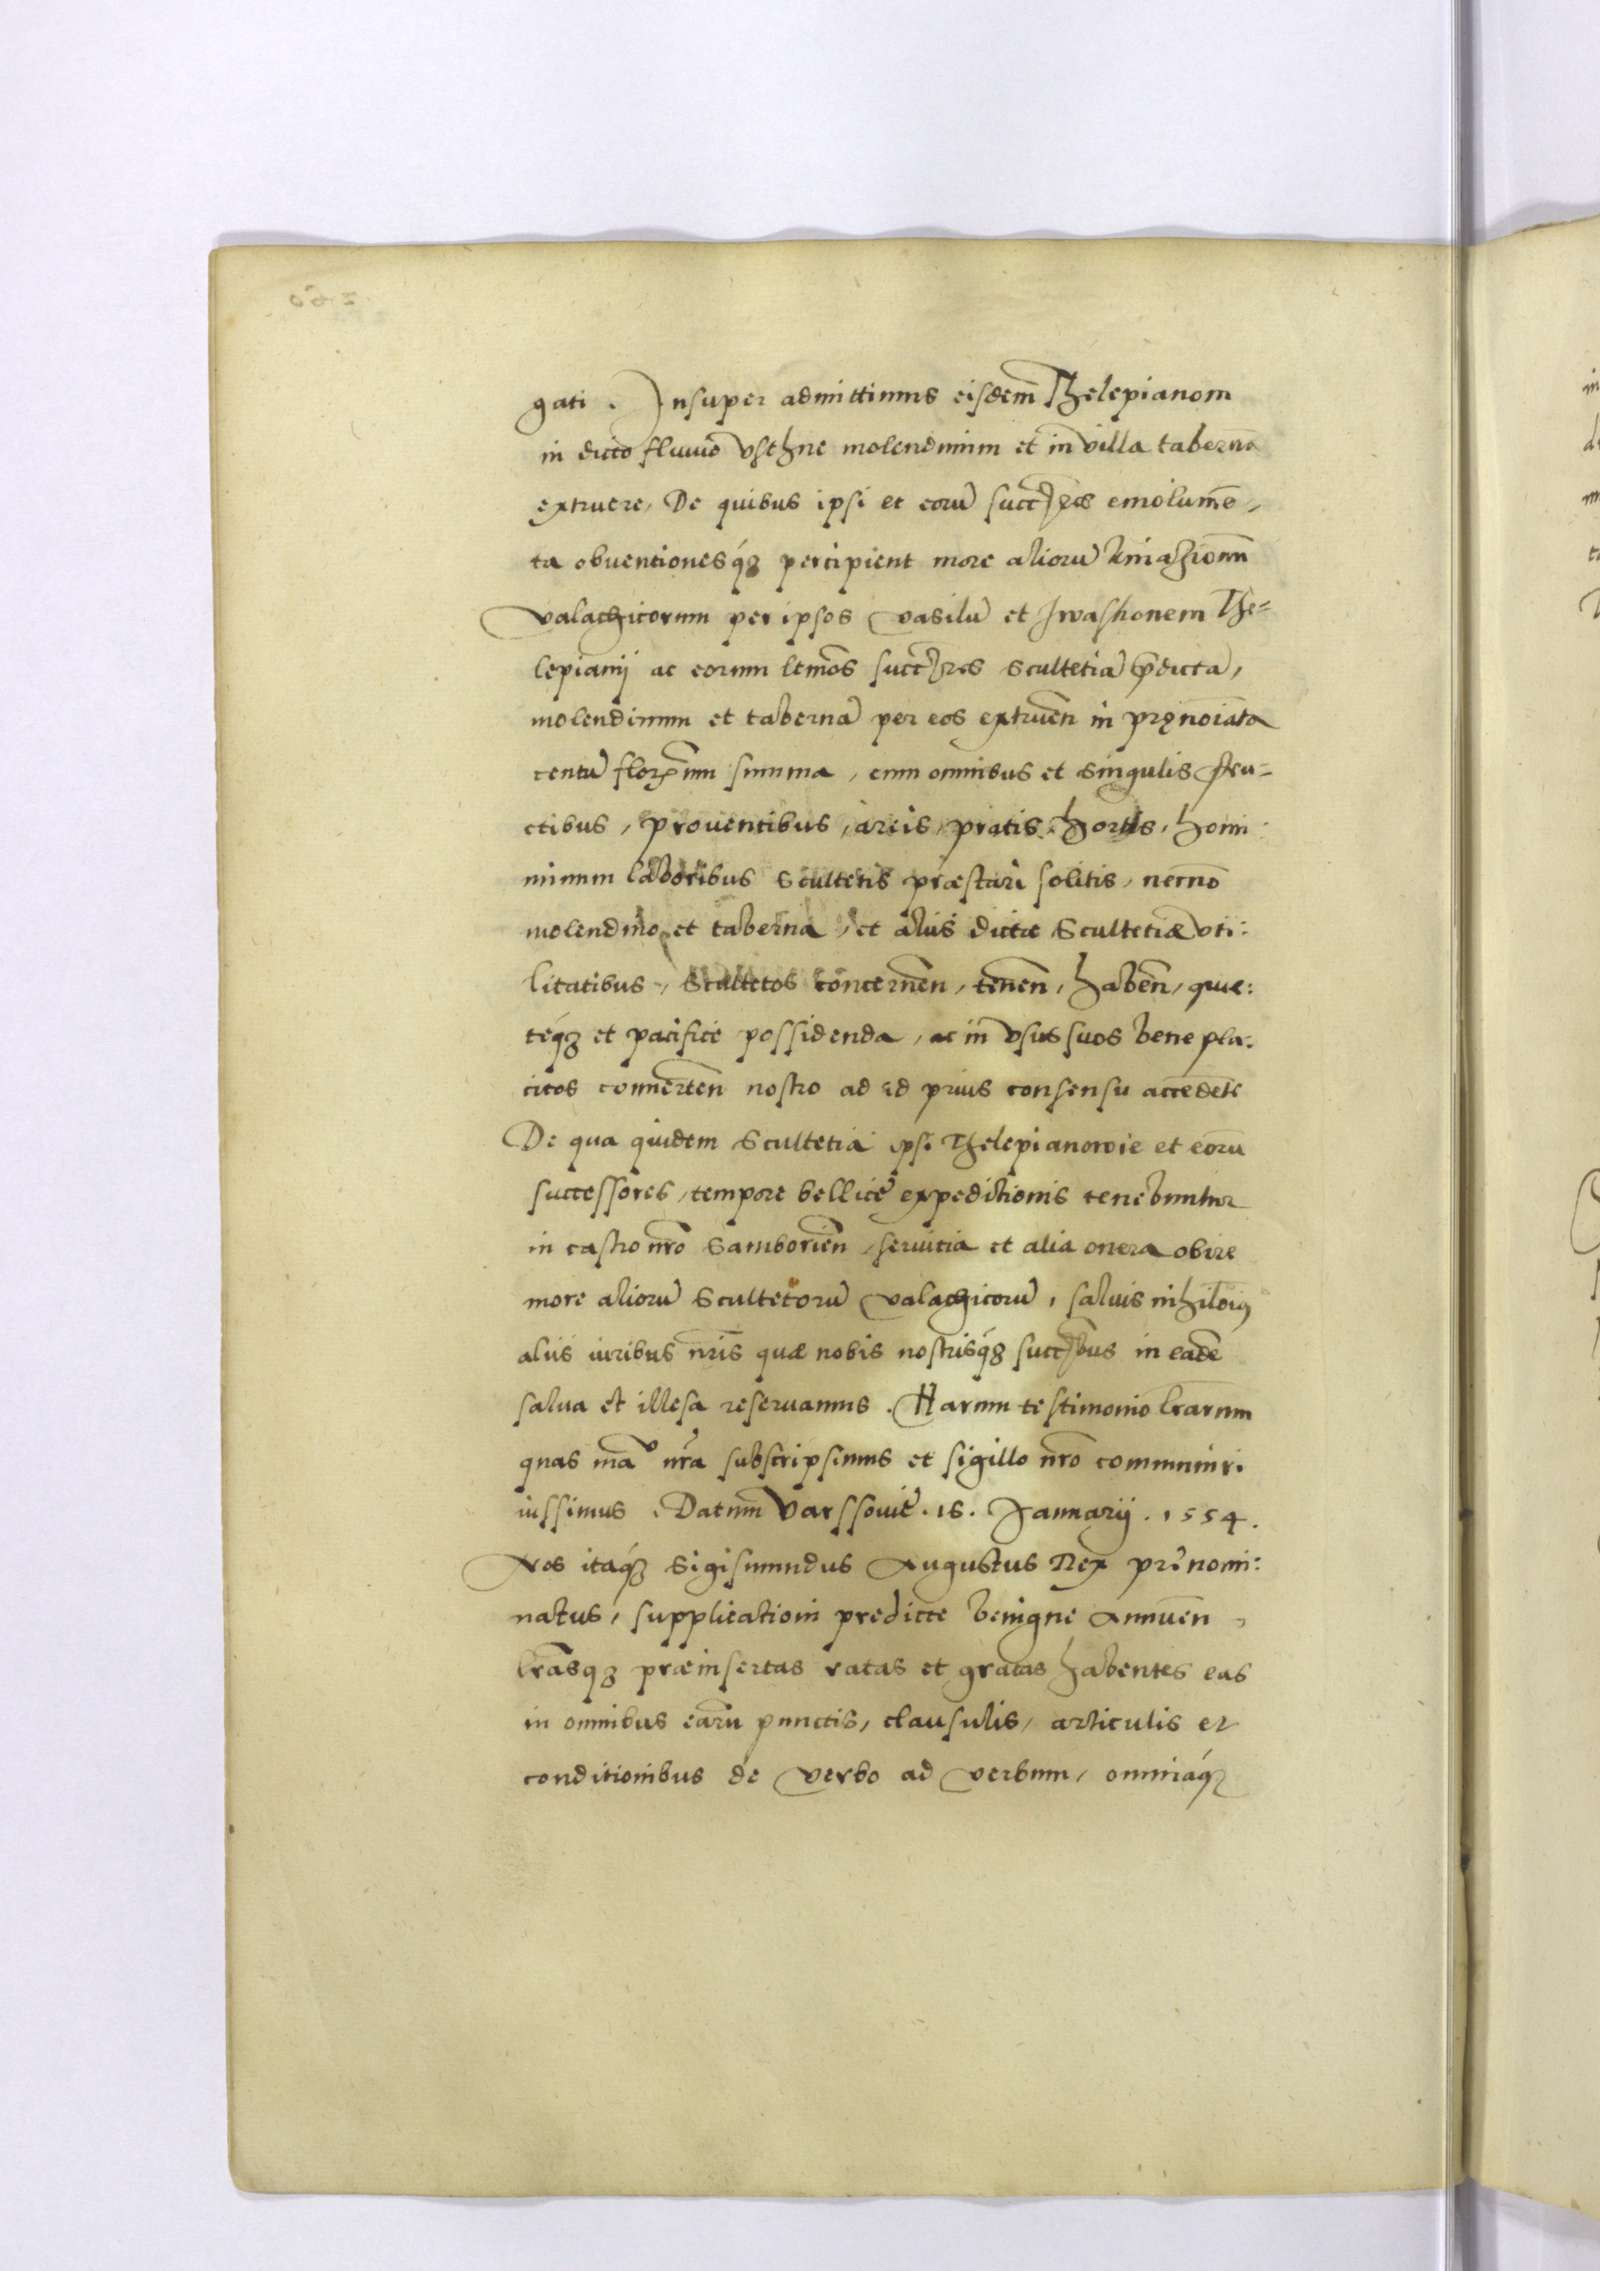 gati . Insuper admittimus eisdem̄ Thelepianom
in dicto fluuio Vsthne molendinum et in villa tabernā
extruere, De quibus ipsi et eorū succ̄res emolumē,
ta obuentionesq́ꝫ percipient more aliorū kniaziorum
Valachicorum per ipsos Vasilū et Iwashonem The=
lepianij ac eorum lemōs succ̄res Scultetiā p̄dictā,
molendinum et tabernā per eos extruen̄ in pręnoīata
centū flor̄enum summa, cum omnibus et singulis fru=
ctibus, prouentibus, areis, pratis, hortis, homi:
minum laboribus Scultetis præstari solitis, necnō
molendino et taberna, et alijs dictæ Scultetiæ vti:
litatibus, Scultetos concernen̄, tenen̄, haben̄, quie:
teq́ꝫ et pacifice possidenda, ac in vsus suos bene pla:
citos conuerten̄ nostro ad id prius consensu accedēte
De qua quidem Scultetia ipsi Thelepianowie et eorū
successores, tempore bellicę expeditionis tenebuntur
in castro nr̄o Samborien̄ seruitia et alia onera obire
more aliorū Scultetorū Valachicorū, saluis nihilōiꝰ
alijs iuribus nr̄is quæ nobis nostrisq́ꝫ succ̄ribus in eadē
salua et illesa reseruamus. Harum testimonio l̄rarum
quas manu nr̄a subscripsimus et sigillo nr̄o communiri
iussimus. Datum Varssouię. 15. Januarij. 1554.
Nos itaq́ꝫ Sigismundus Augustus Rex prenomi:
natus, supplicationi predicte benigne Annuen̄,
l̄rasqꝫ præinsertas ratas et gratas habentes eas
in omnibus earū punctis, clausulis, articulis et
conditionibus de verbo ad verbum, omniaq́ꝫ